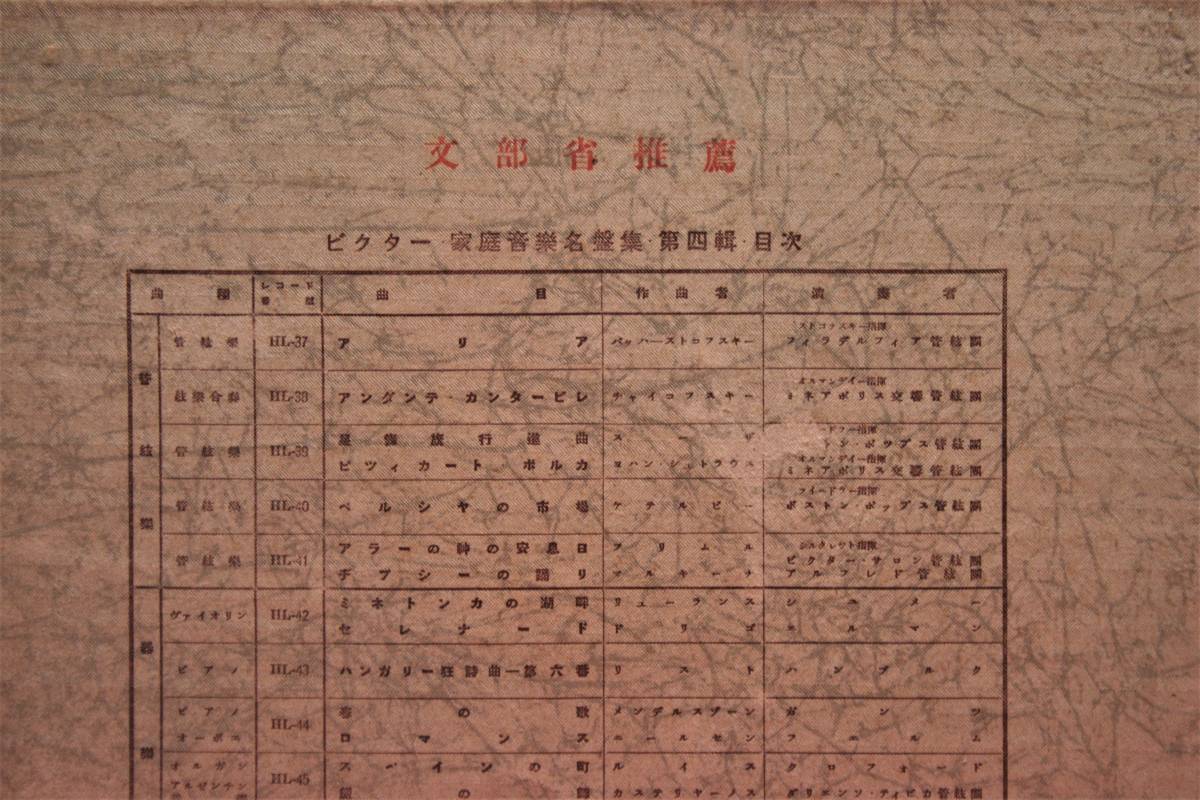 文部省推薦
ビクター 家庭音樂名盤集·第四輯·目次
曲種 レコード番號 曲目 作曲者 演奏者
管絃樂
管絃樂 HL-37 アリア バッハ—ストコフスキー ストコフスキー指揮 フィラデルフィア管絃團
絃樂合奏 HL-38 アンダンテ・カンタービレ チャイコフスキー オルマンディー指揮 ミネアポリス交響管絃團
管絃樂 HL-39 行進曲 スーザ トン・ポップス管絃團
ピツィカート・ポルカ ヨハン・シュトラウス オルマンディー指揮 ミネアポリス交響管絃團
管絃樂 HL-40 ペルシヤの市場 ケテルビー フイードラー指揮 ボストン・ポップス管絃團
管絃樂 HL-41 アラーの神の安息日 フリムル シルクレット指揮 ビクター・サロン管絃團
ヂプシーの踊り アルフレド管絃團
器
ヴァイオリン HL-42 ミネトンカの湖畔 リューランス シュメー
セレナード ドリゴ エルマン
ピアノ HL-43 ハンガリー狂詩曲—第六番 リスト ハンブルク
ピアノ HL-44 春の歌 メンデルスゾーン ガンツ
オーボエ ロマンス ニールセン
オルガン HL-45 スペインの町 ルイス クロフォード
アルゼンチン の カステリヤーノス ダリエンソ・ティピカ管絃團